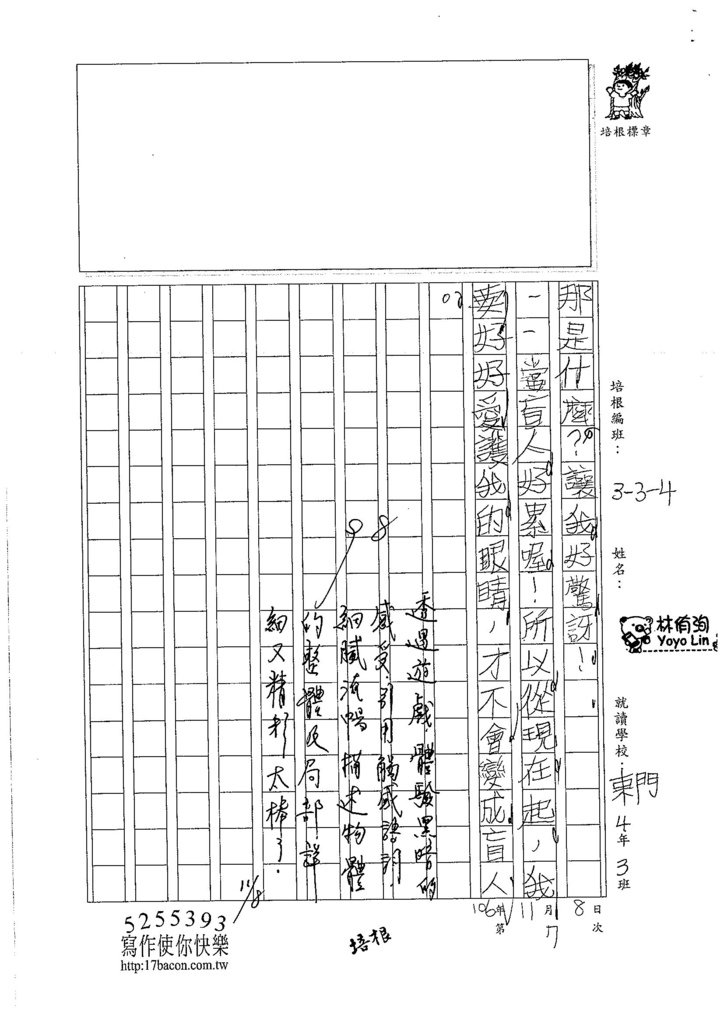 培根標章
培根編班：
3-3-4
姓名：
林侑洵
Yoyo Lin
就讀學校：東門4年3班
106年11月8日
第7次
那是什麼？讓我好驚訝！
當盲人好累喔！所以從現在起，我
要好好愛護我的眼睛，才不會變成盲人
透過遊戲體驗黑暗的
感受。引用觸感語詞，
細膩流暢描述物體
的整體及局部，詳
細又精彩太棒了。
98
11/8
培根
5255393
寫作使你快樂
http:17bacon.com.tw